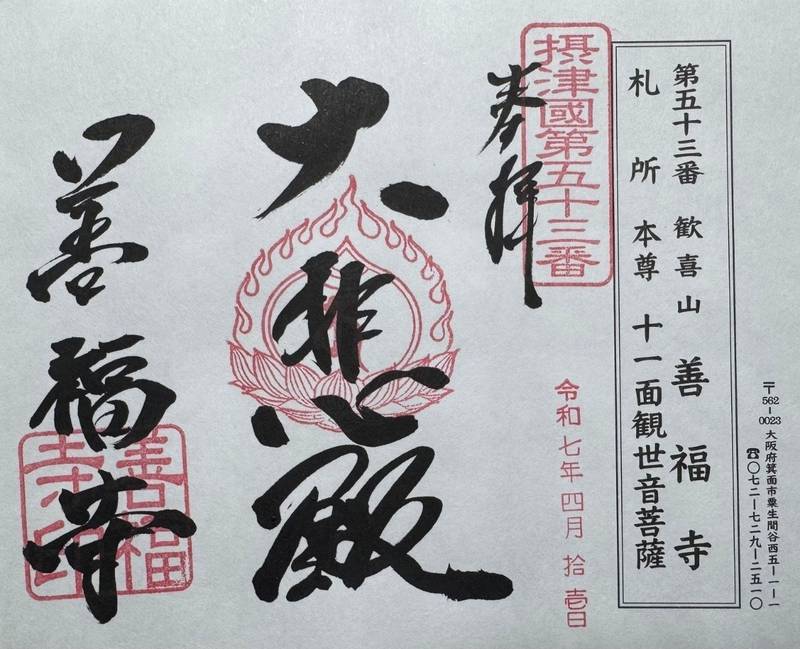 〒562-0023 大阪府箕面市粟生間谷西五-一-一
☎〇七二-七二九-二五一〇
第五十三番 歓喜山 善福寺
札所本尊 十一面観世音菩薩
摂津國第五十三番
奉拝
令和七年四月拾壱日
大悲殿
善福寺
善福寺印